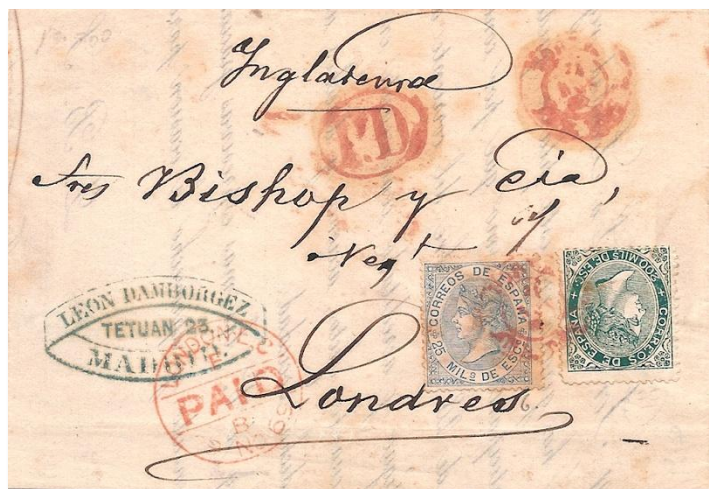 Inglaterra
P.D.
Sres Bishop y cia,
Negt
LEON DAMBORGEZ
TETUAN 23.
MADRID.
LONDON E C
PAID
CORREOS DE ESPAÑA
25 MILS DE ESCO
CORREOS DE ESPAÑA
200 MILS DE ESCO
Londres